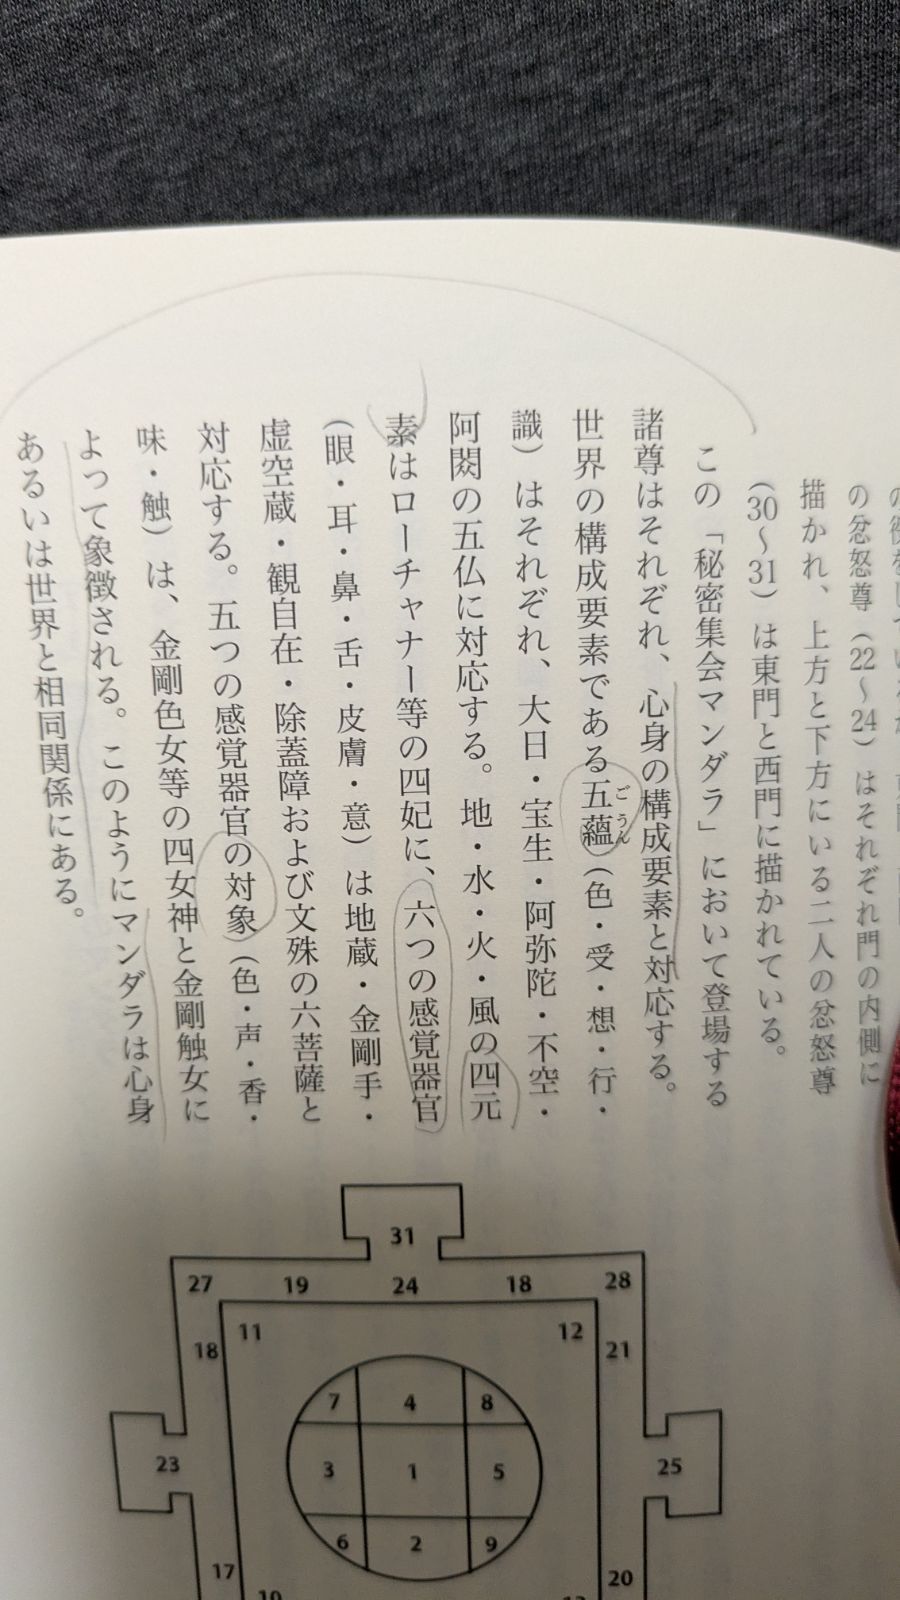 の忿怒尊（22〜24）はそれぞれ門の内側に
描かれ、上方と下方にいる二人の忿怒尊
（30〜31）は東門と西門に描かれている。
この「秘密集会マンダラ」において登場する
諸尊はそれぞれ、心身の構成要素と対応する。
世界の構成要素である五蘊（色・受・想・行・
ごうん
識）はそれぞれ、大日・宝生・阿弥陀・不空・
阿閦の五仏に対応する。地・水・火・風の四元
素はローチャナー等の四妃に、六つの感覚器官
（眼・耳・鼻・舌・皮膚・意）は地蔵・金剛手・
虚空蔵・観自在・除蓋障および文殊の六菩薩と
対応する。五つの感覚器官の対象（色・声・香・
味・触）は、金剛色女等の四女神と金剛触女に
よって象徴される。このようにマンダラは心身
あるいは世界と相同関係にある。
31
27 19 24 18 28
11 12
18 21
7 4 8
23 3 1 5 25
6 2 9
17 20